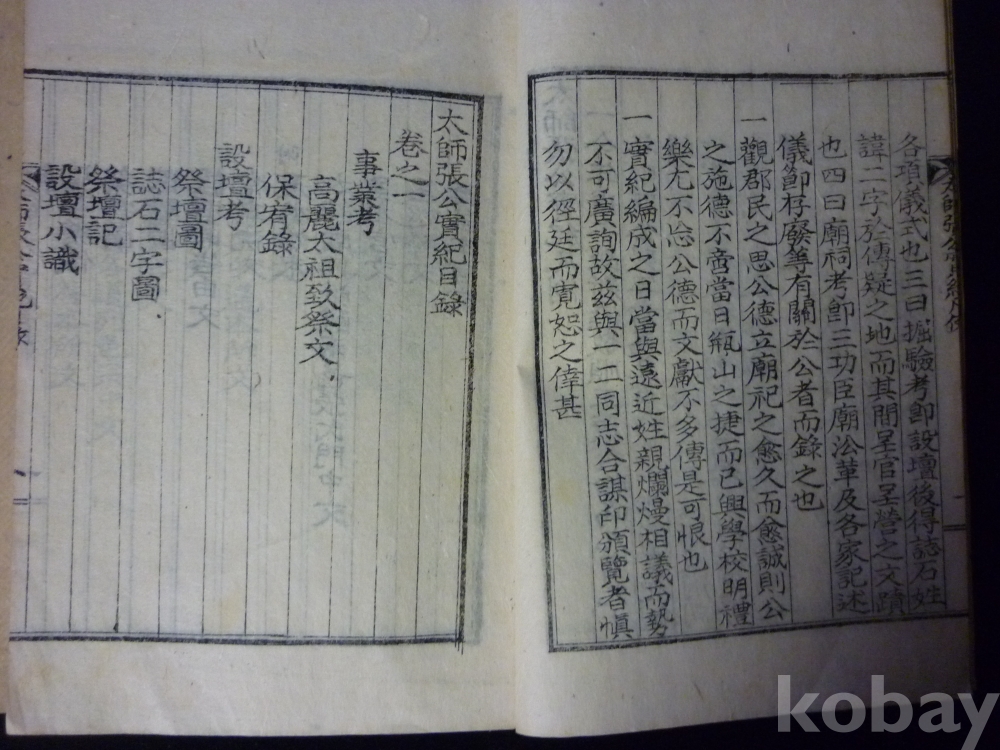 各項儀式也三曰掘驗考卽設壇後得誌石姓
諱二字於傳疑之地而其間呈官呈營之文蹟
也四曰廟祠考卽三功臣廟沿革及各家記述
儀節存廢等有關於公者而錄之也
一觀郡民之思公德立廟祀之愈久而愈誠則公
之施德不啻當日甁山之捷而已興學校明禮
樂尤不忘公德而文獻不多傳是可恨也
一實紀編成之日當與遠近姓親爛熳相議而勢
不可廣詢故玆與一二同志合謀印頒覽者愼
勿以徑廷而寬恕之倖甚
太師張公實紀目錄
卷之一
事業考
高麗太祖致祭文
保有錄
設壇考
祭壇圖
誌石二字圖
祭壇記
設壇小識
kobay